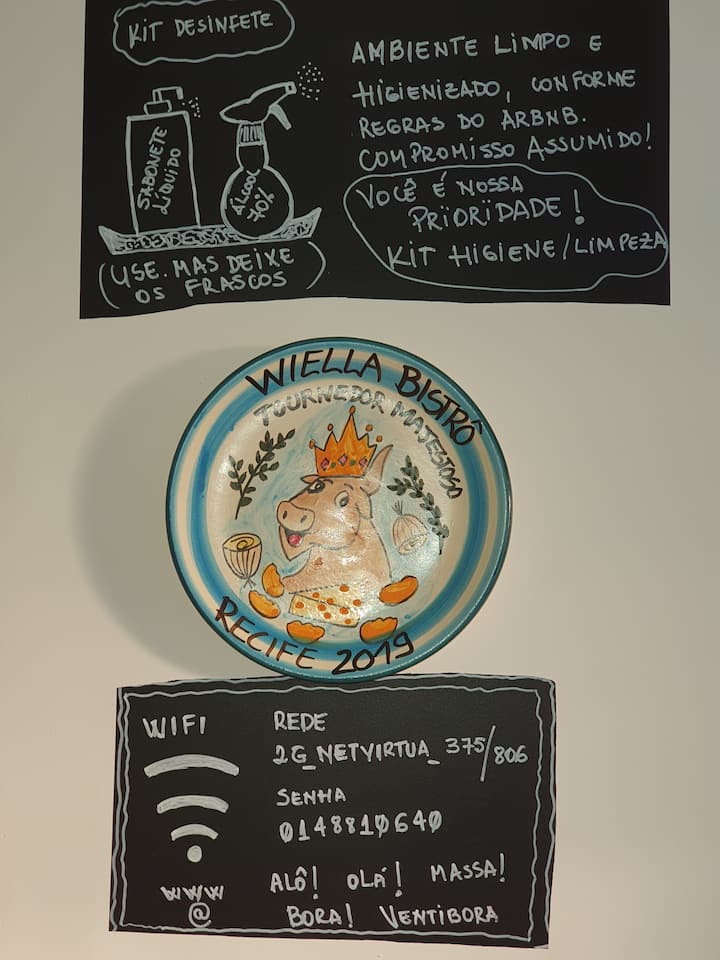 KIT DESINFETE
SABONETE
LÍQUIDO
ÁLCOOL
70%
(USE. MAS DEIXE
OS FRASCOS)
AMBIENTE LIMPO E
HIGIENIZADO, CONFORME
REGRAS DO ARBNB.
COMPROMISSO ASSUMIDO!
VOCÊ É NOSSA
PRIORIDADE!
KIT HIGIENE/LIMPEZA
WIELLA BISTRÔ
TOURNEDOR MAJESTOSO
RECIFE 2019
WIFI
WWW
@
REDE
2G_NETVIRTUA_375/806
SENHA
0148810640
ALÔ! OLÁ! MASSA!
BORA! VENTIBORA